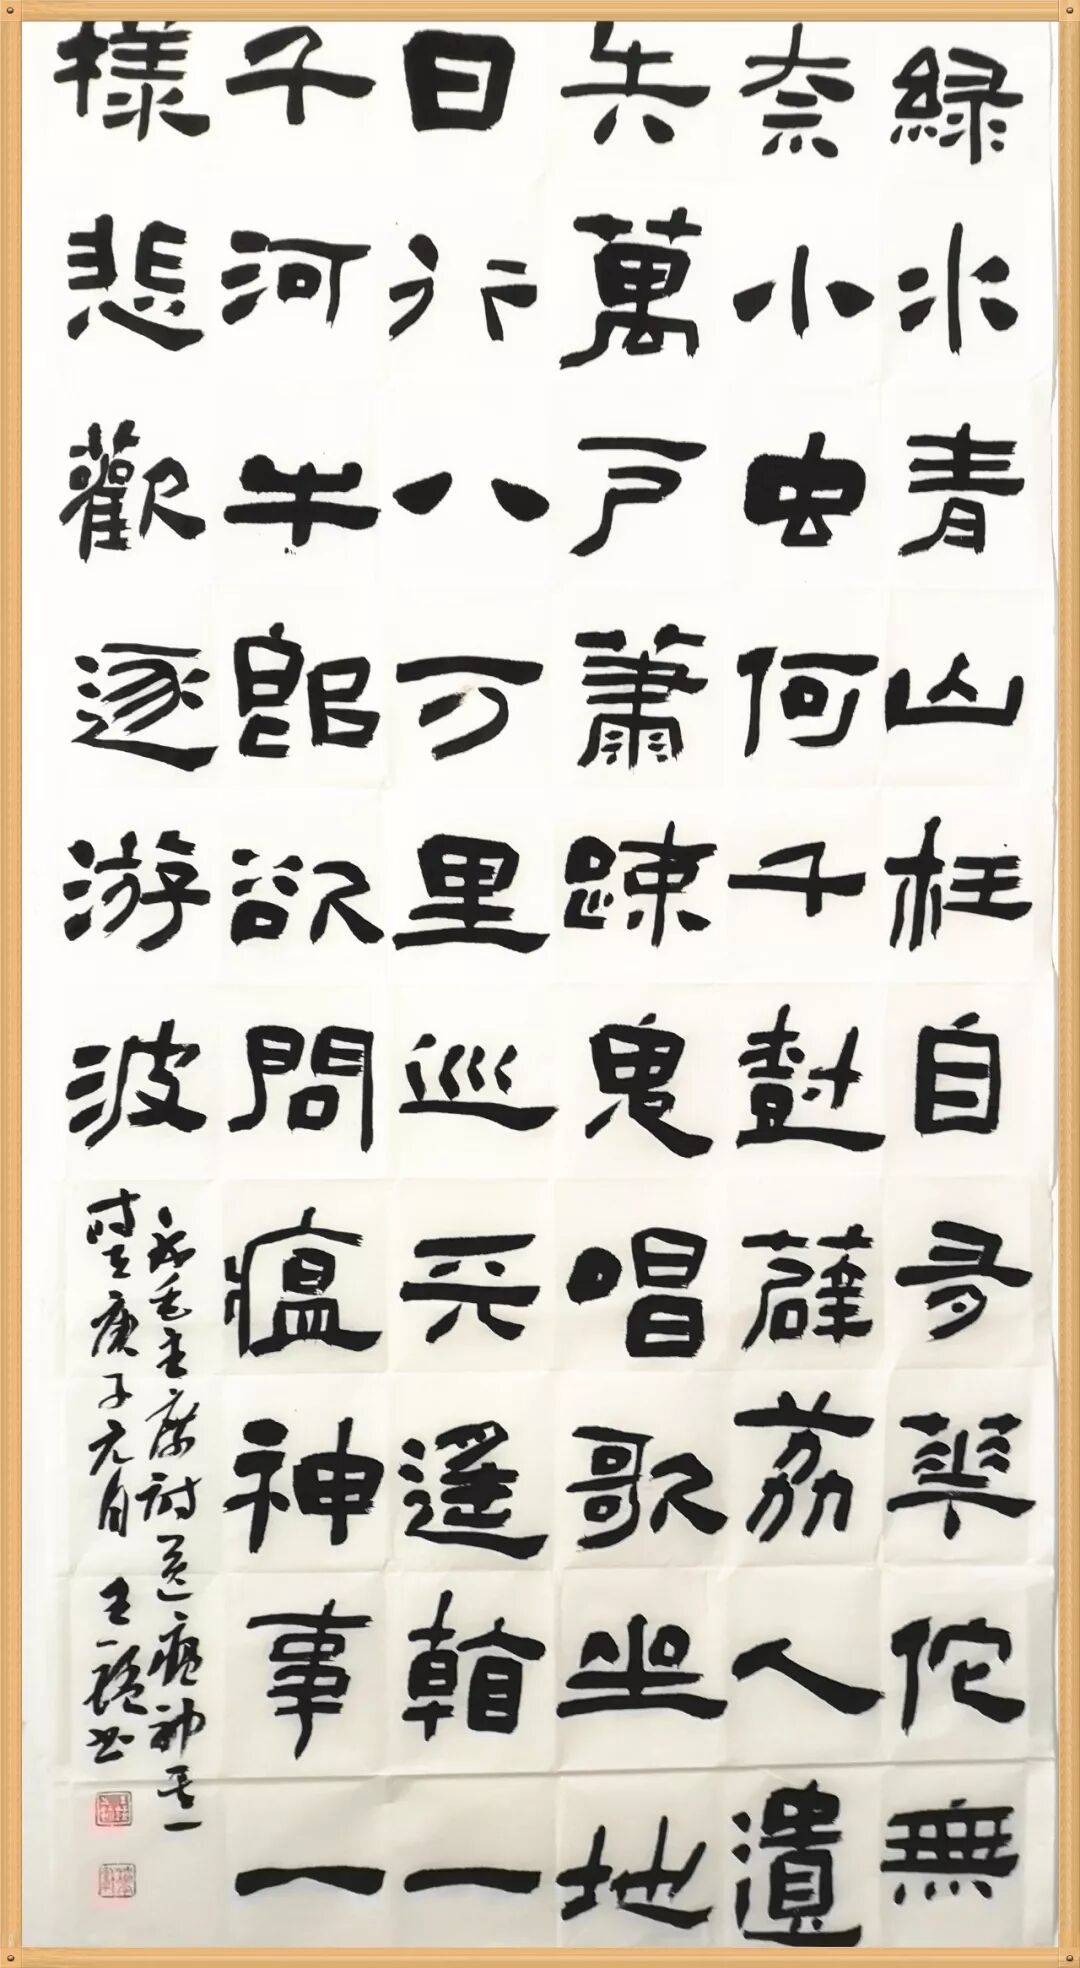 綠水青山枉自多華佗無
奈小虫何千尌薜荔人遺
矢萬戶蕭踈鬼唱歌坐地
日行八万里巡天遙看一
千河牛郎欲問瘟神事一
樣悲歡逐游波
录毛主席詩送瘟神其一
時在庚子元月 王 书